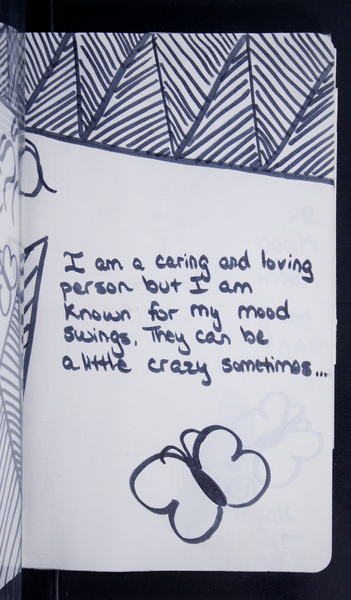 I am a caring and loving
person but I am
known for my mood
swings. They can be
a little crazy sometimes...